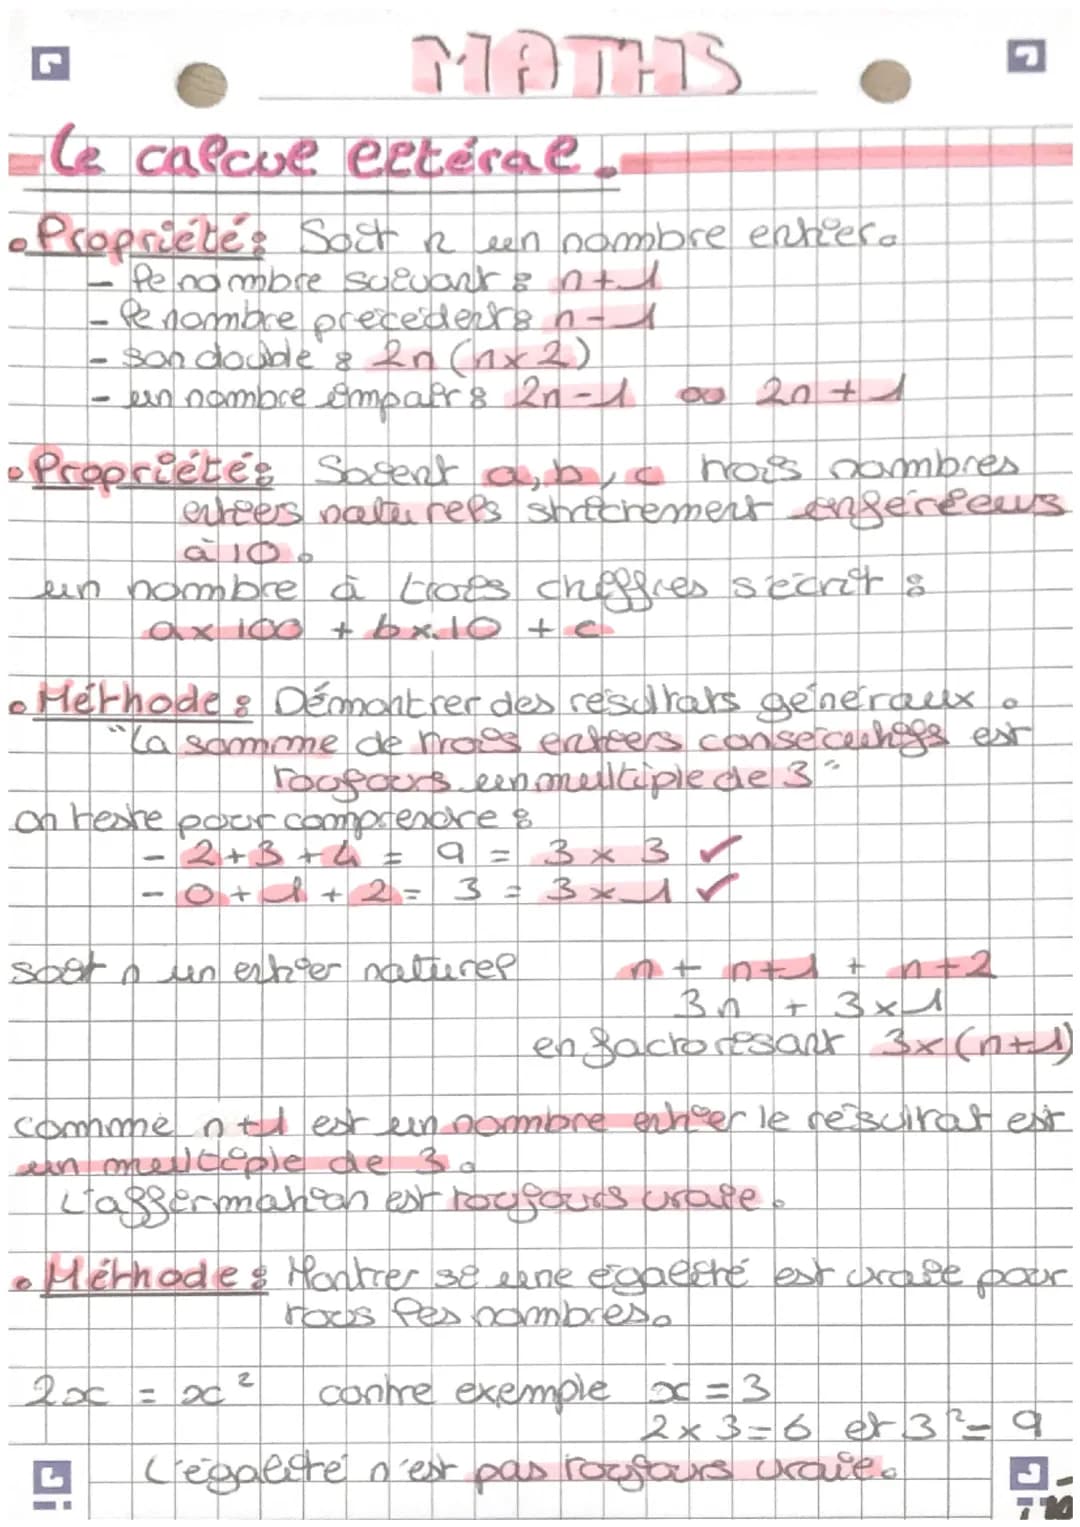 MATHS
Le calcul littéral.
• Propriété : Soit n un nombre entier.
- le nombre suivant : n+1
- le nombre précédent : n-1
- son double : 2n (n×2)
- un nombre impair : 2n-1 ou 2n+1
• Propriété : Soient a, b, c trois nombres
entiers naturels strictement inférieurs
à 10.
un nombre à trois chiffres s'écrit :
a×100 + b×10 + c
• Méthode : Démontrer des résultats généraux.
"La somme de trois entiers consécutifs est
toujours un multiple de 3"
on teste pour comprendre :
- 2+3+4 = 9 = 3 × 3 ✓
- 0+1+2 = 3 = 3 × 1 ✓
soit n un entier naturel n + n+1 + n+2
3n + 3×1
en factorisant 3×(n+1)
comme n+1 est un nombre entier le résultat est
un multiple de 3.
L'affirmation est toujours vraie.
• Méthode : Montrer si une égalité est vraie pour
tous les nombres.
2x = x² contre exemple x = 3
2×3=6 et 3²=9
L'égalité n'est pas toujours vraie.